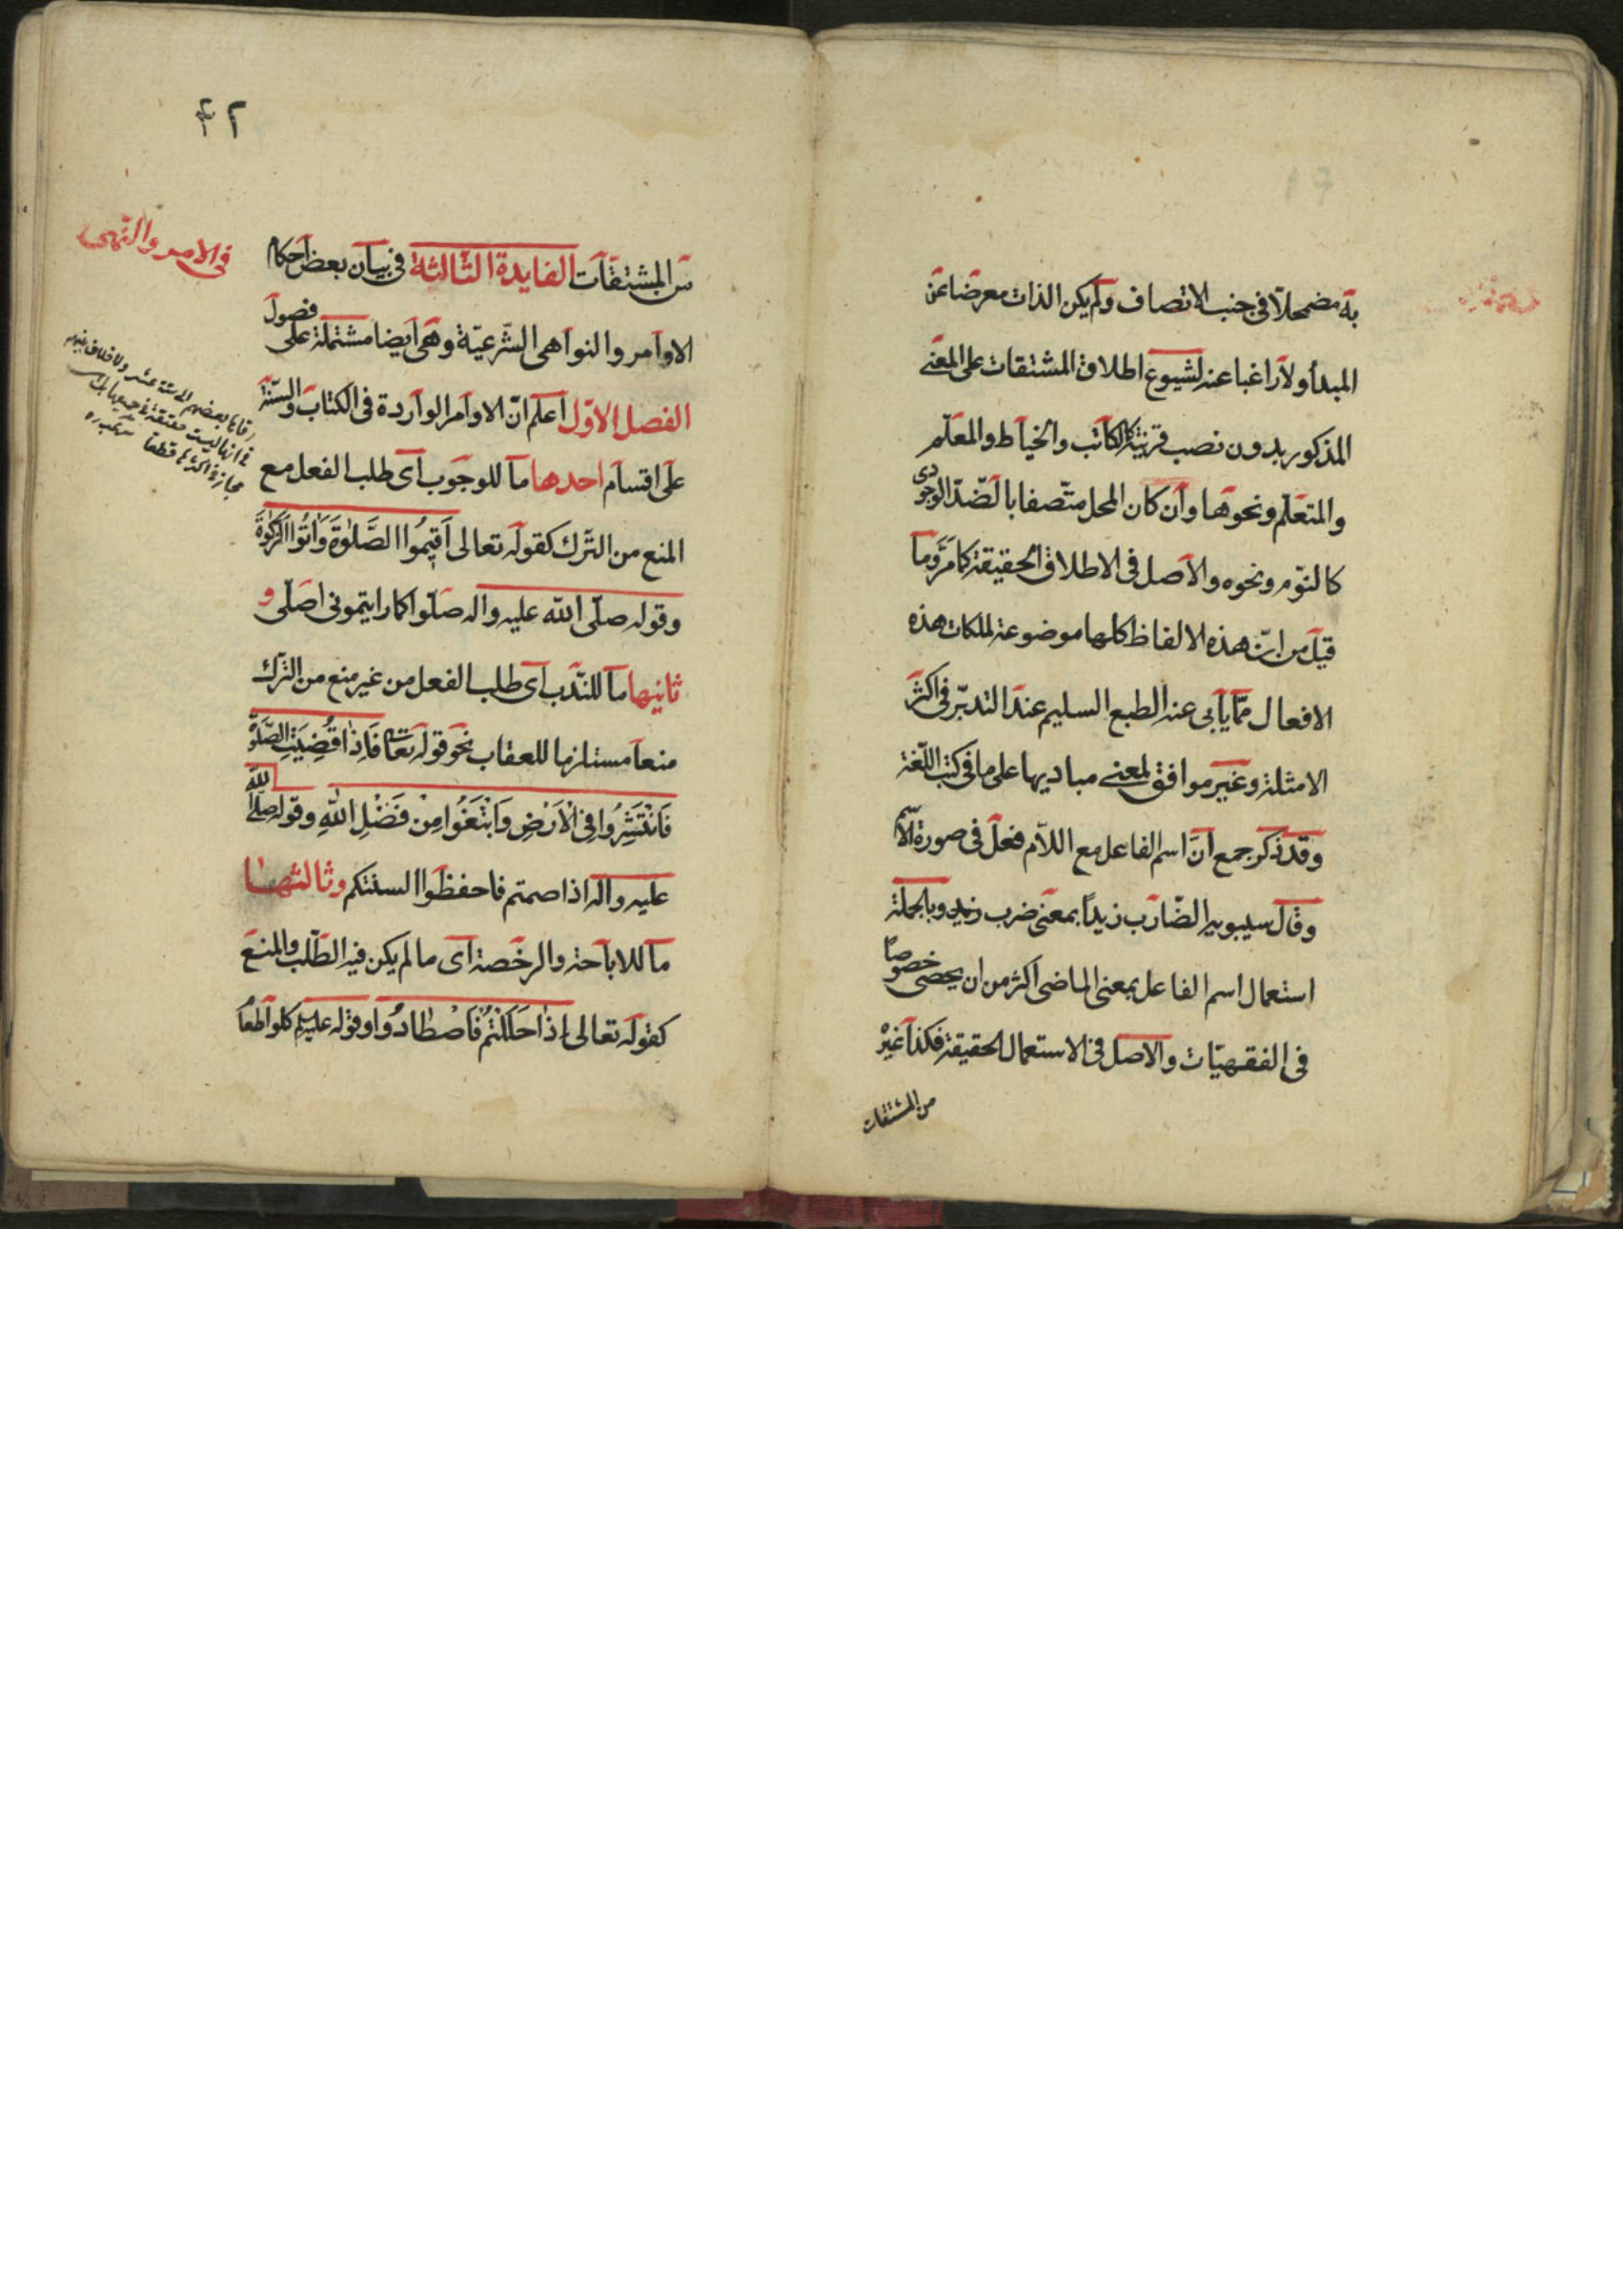 به مضمحلا فی جنب الاتصاف ولم یکن الذات معرضا عن
المبدأ ولا راغبا عنه لشیوع اطلاق المشتقات علی المعنی
المذکور بدون نصب قرینة کالکاتب والخیاط والمعلّم
والمتعلّم ونحوها وان کان المحل متّصفا بالضّدّ الوجودی
کالنّوم ونحوه والاصل فی الاطلاق الحقیقة کما مَرّ وما
قیل من انّ هذه الالفاظ کلها موضوعة لملکات هذه
الافعال ممّا یأبی عنه الطبع السلیم عند التدبّر فی اکثر
الامثلة وغیر موافق لمعنی مبادیها علی ما فی کتب اللّغة
وقد ذکر جمع انّ اسم الفاعل مع اللّام فعل فی صورة الاسم
وقال سیبویه الضّارب زیداً بمعنی ضرب زید وبالجملة
استعمال اسم الفاعل بمعنی الماضی اکثر من ان یحصی خصوصًا
فی الفقهیّات والاصل فی الاستعمال الحقیقة فکذا غیره
من المشتقات
٤٢
فی الامر والنّهی
من المشتقّات الفایدة الثّالثة فی بیان بعض احکام
الاوامر والنواهی الشّرعیّة وهی ایضا مشتملة علی فصول
الفصل الاوّل اعلم انّ الاوامر الواردة فی الکتاب والسنّة
علی اقسام احدها ما للوجوب ای طلب الفعل مع
المنع من التّرک کقوله تعالی اَقیمُوا الصَّلوٰةَ وَاٰتُوا الزَّکوٰةَ
وقوله صلّی الله علیه واله صلّوا کما رایتمونی اصلّی و
ثانیها ما للنّدب ای طلب الفعل من غیر منع من التّرک
منعا مستلزما للعقاب نحو قوله تعا فَاِذا قُضِیَتِ الصَّلوٰةُ
فَانْتَشِرُوا فِی الْاَرْضِ وَابْتَغُوا مِنْ فَضْلِ اللهِ وقوله صلّی الله
علیه واله اذا صمتم فاحفظوا السنتکم وثالثها
ما للاباحة والرخصة ای ما لم یکن فیه الطّلب والمنع
کقوله تعالی اِذا حَلَلْتُمْ فَاصْطادُوا وقوله علیه السلم کلوا طعا